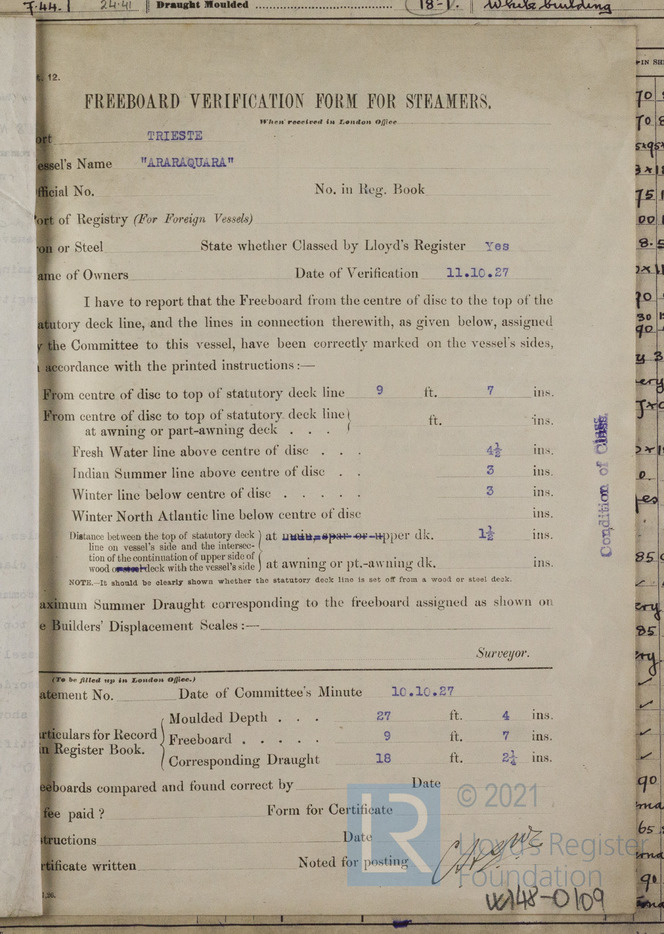 7.44. 24.41 Draught Moulded 18-1. White building
12.
FREEBOARD VERIFICATION FORM FOR STEAMERS.
When received in London Office
ort TRIESTE
essel's Name "ARARAQUARA"
fficial No. No. in Reg. Book
ort of Registry (For Foreign Vessels)
on or Steel State whether Classed by Lloyd's Register Yes
ame of Owners Date of Verification 11.10.27
I have to report that the Freeboard from the centre of disc to the top of the
atutory deck line, and the lines in connection therewith, as given below, assigned
y the Committee to this vessel, have been correctly marked on the vessel's sides,
accordance with the printed instructions:—
From centre of disc to top of statutory deck line 9 ft. 7 ins.
From centre of disc to top of statutory deck line
at awning or part-awning deck . . . ft. ins.
Fresh Water line above centre of disc . . . 4½ ins.
Indian Summer line above centre of disc . . 3 ins.
Winter line below centre of disc . . . . . 3 ins.
Winter North Atlantic line below centre of disc ins.
Distance between the top of statutory deck
line on vessel's side and the intersec-
tion of the continuation of upper side of
wood or steel deck with the vessel's side
at main, spar or upper dk. 1½ ins.
at awning or pt.-awning dk. ins.
NOTE.—It should be clearly shown whether the statutory deck line is set off from a wood or steel deck.
aximum Summer Draught corresponding to the freeboard assigned as shown on
e Builders' Displacement Scales:—
Surveyor.
(To be filled up in London Office.)
atement No. Date of Committee's Minute 10.10.27
rticulars for Record
n Register Book.
Moulded Depth . . . 27 ft. 4 ins.
Freeboard . . . . . 9 ft. 7 ins.
Corresponding Draught 18 ft. 2¼ ins.
eeboards compared and found correct by Date
fee paid? Form for Certificate
structions Date
rtificate written Noted for posting
Condition of Class
© 2021
LR
Lloyd's Register
Foundation
W148-0109